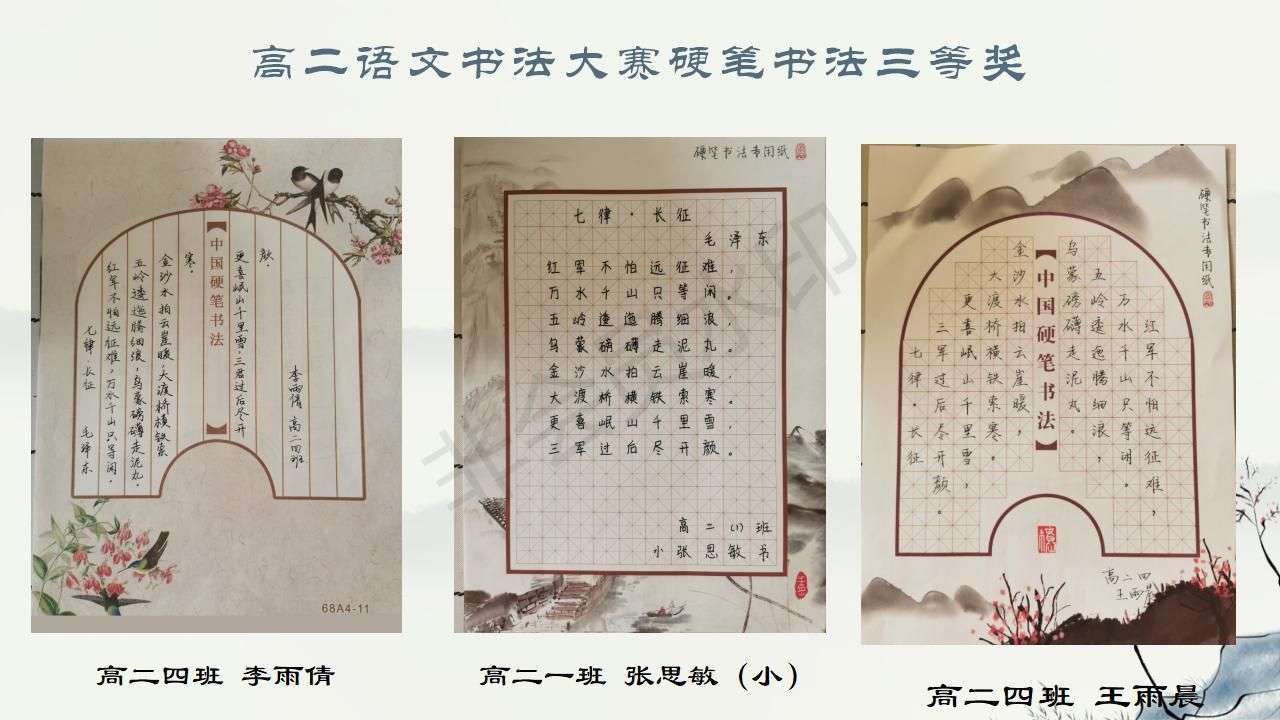 高二语文书法大赛硬笔书法三等奖
七律·长征 毛泽东
红军不怕远征难,万水千山只等闲。
五岭逶迤腾细浪,乌蒙磅礴走泥丸。
金沙水拍云崖暖,大渡桥横铁索
寒。
【中国硬笔书法】
更喜岷山千里雪,三军过后尽开
颜。
李雨倩 高二四班
68A4-11
高二四班 李雨倩
硬笔书法专用纸
七律·长征
毛泽东
红军不怕远征难,
万水千山只等闲。
五岭逶迤腾细浪,
乌蒙磅礴走泥丸。
金沙水拍云崖暖,
大渡桥横铁索寒。
更喜岷山千里雪,
三军过后尽开颜。
高二(1)班
小张思敏书
高二一班 张思敏(小)
硬笔书法专用纸
红军不怕远征难,
万水千山只等闲。
五岭逶迤腾细浪,
乌蒙磅礴走泥丸。
【中国硬笔书法】
金沙水拍云崖暖,
大渡桥横铁索寒。
更喜岷山千里雪,
三军过后尽开颜。
七律·长征
高二四
王雨
高二四班 王雨晨